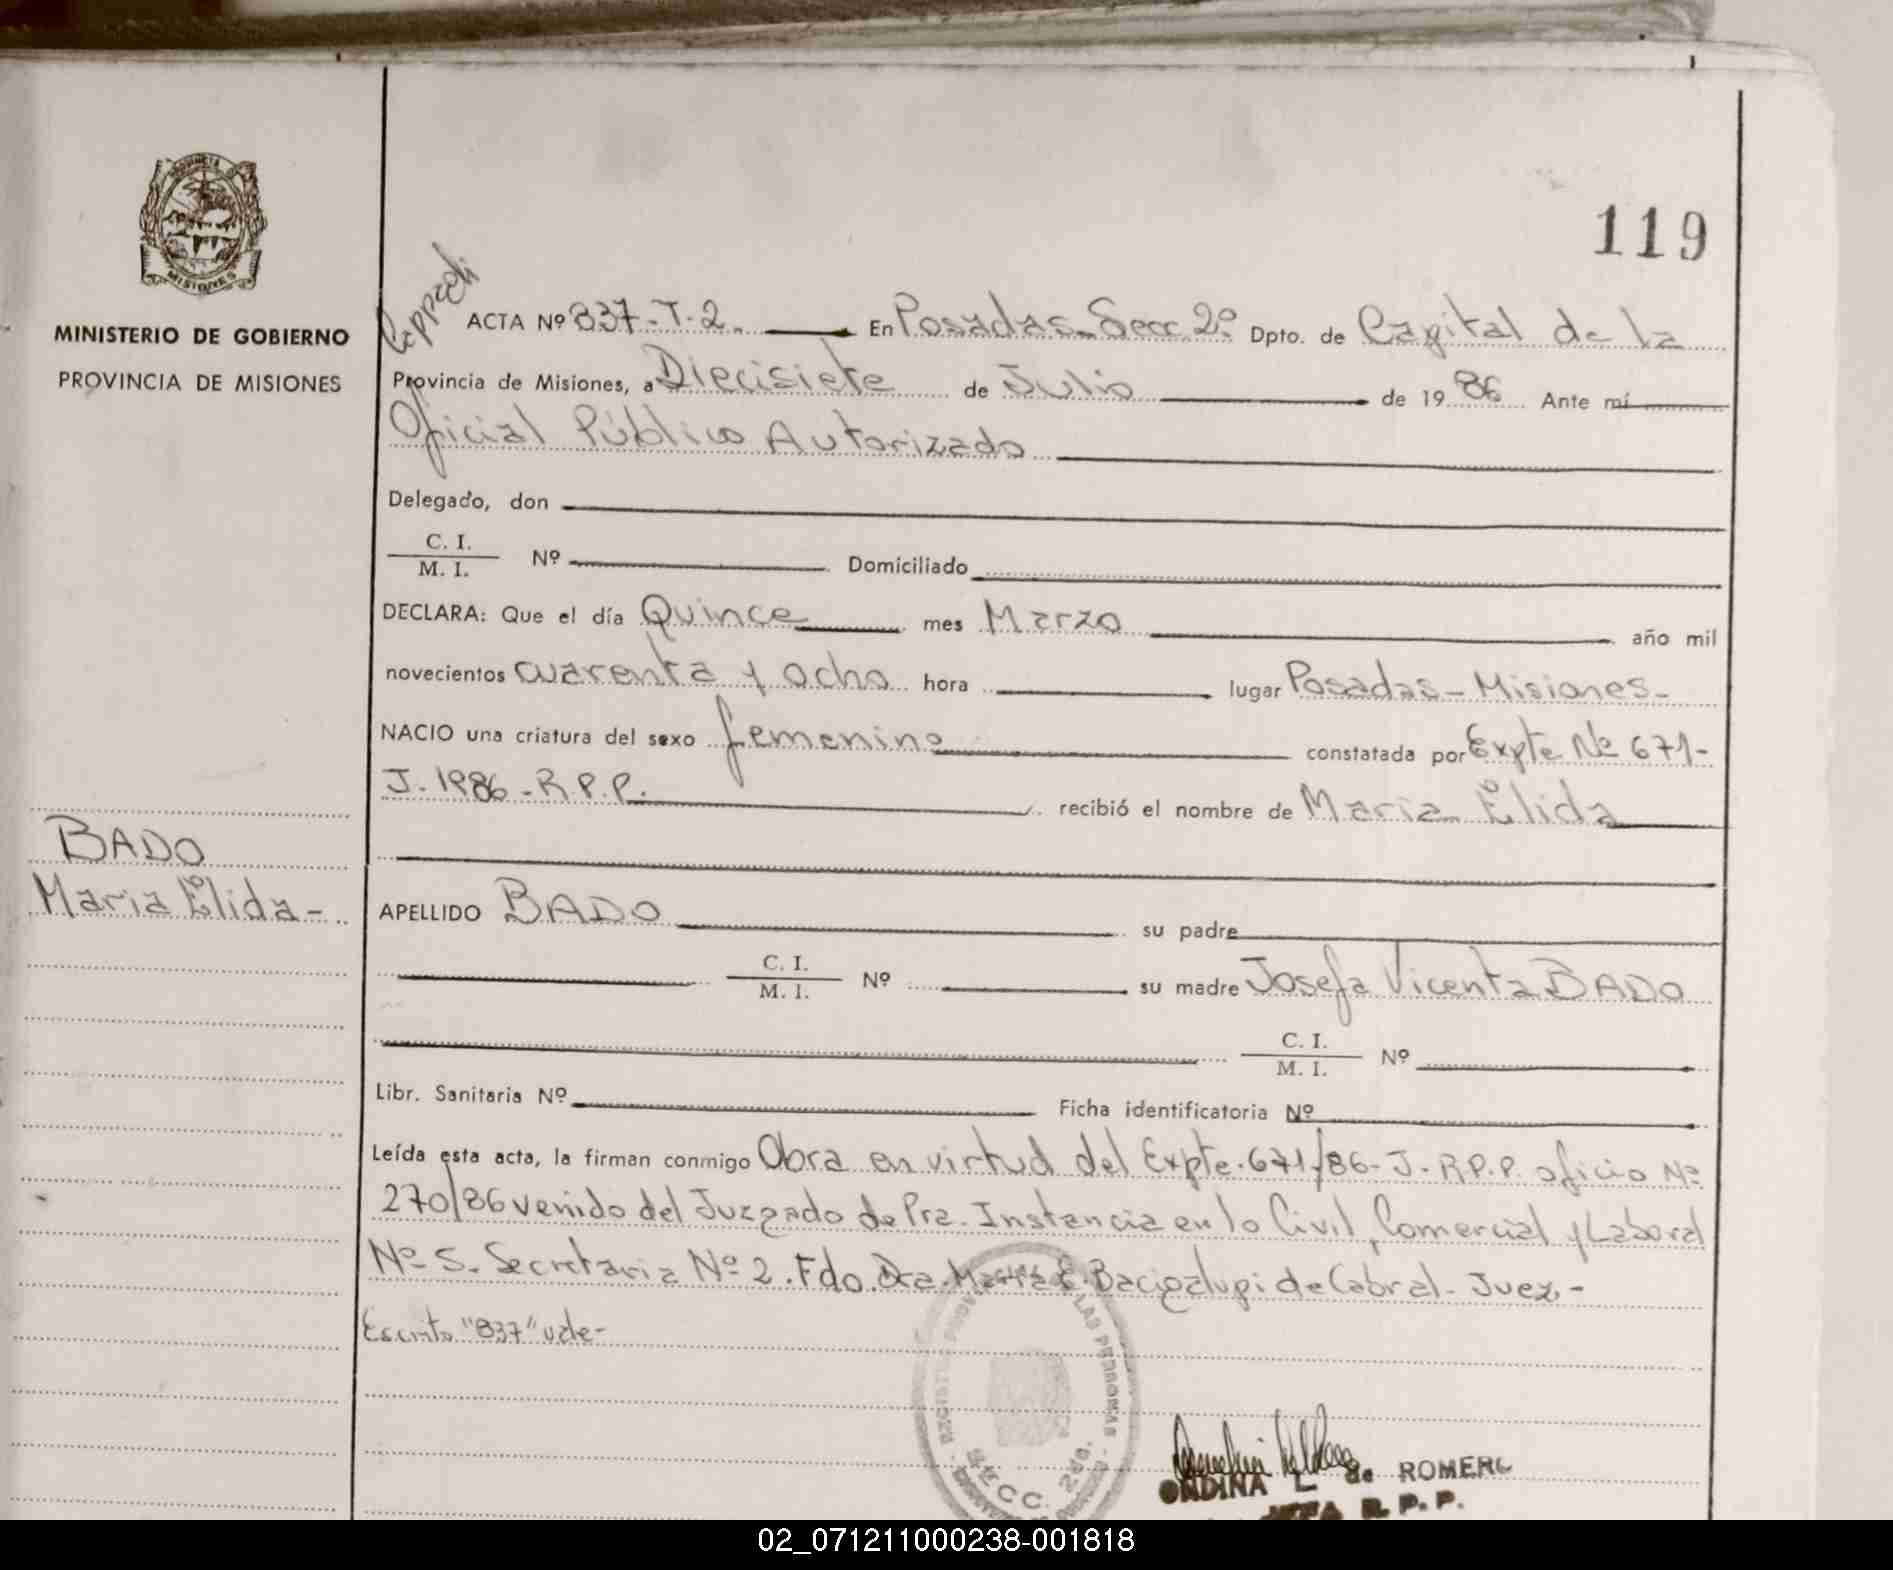 119
MINISTERIO DE GOBIERNO
PROVINCIA DE MISIONES
ACTA Nº 837-T-2. En Posadas-Secc 2º Dpto. de Capital de la
Provincia de Misiones, a Diecisiete de Julio de 1986 Ante mí
Oficial Público Autorizado
Delegado, don
C. I.
M. I. Nº Domiciliado
DECLARA: Que el día Quince mes Marzo año mil
novecientos cuarenta y ocho hora lugar Posadas-Misiones-
NACIO una criatura del sexo femenino constatada por Expte Nº 671-
J-1986-R.P.P. recibió el nombre de María Elida
BADO
María Elida-
APELLIDO BADO su padre
C. I.
M. I. Nº su madre Josefa Vicenta BADO
C. I.
M. I. Nº
Libr. Sanitaria Nº Ficha identificatoria Nº
Leída esta acta, la firman conmigo Obra en virtud del Expte.671/86-J-R.P.P. oficio Nº
270/86 venido del Juzgado de Pra. Instancia en lo Civil, Comercial y Laboral
Nº 5-Secretaria Nº 2. Fdo. Dra. María E. Bacigalupi de Cabral-Juez.-
Escrito "837" vale-
LAS PERSONAS
SECC. 2da.
ONDINA L de ROMERO
R. P. P.
02_071211000238-001818